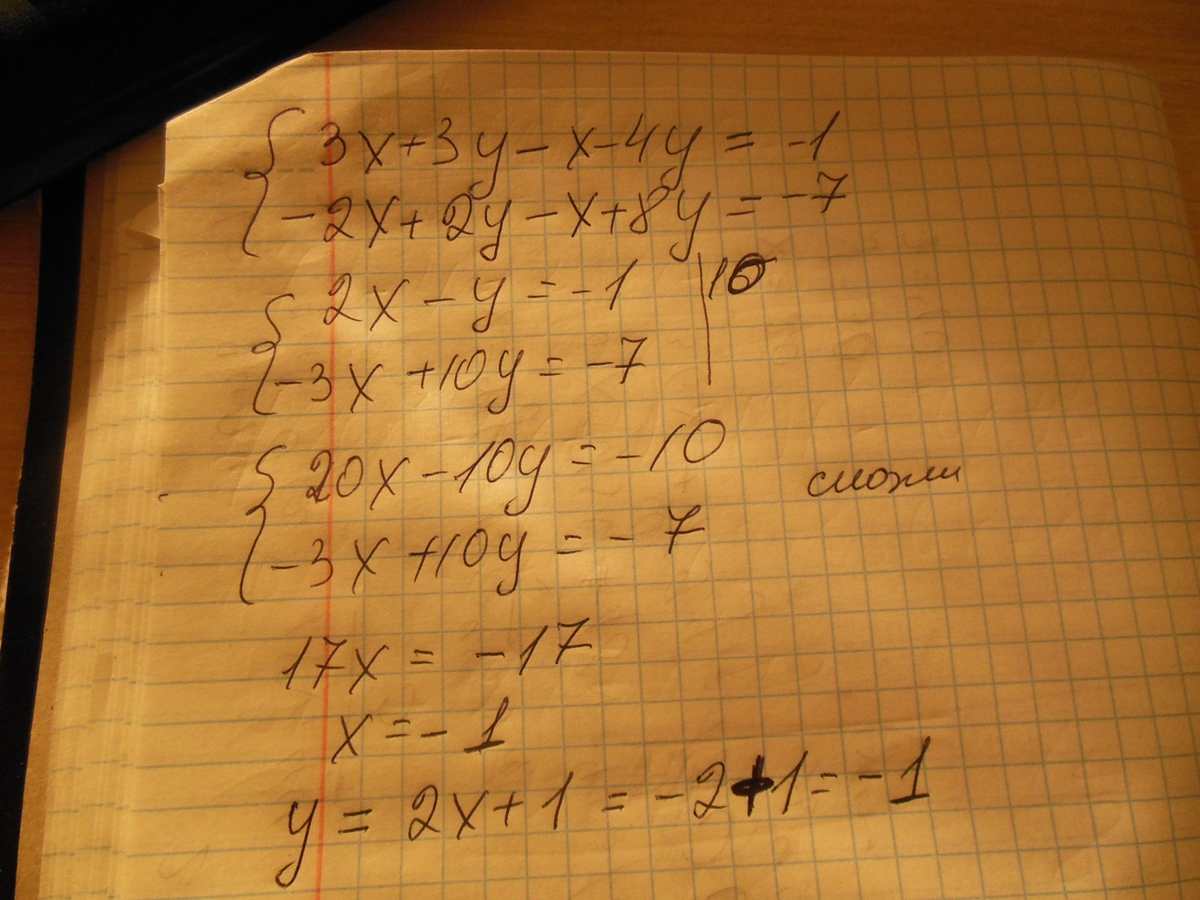 3x+3y-x-4y = -1
-2x+2y-x+8y = -7
2x-y = -1 | 10
-3x+10y = -7
20x-10y = -10
-3x+10y = -7
сложим
17x = -17
x = -1
y = 2x+1 = -2+1 = -1